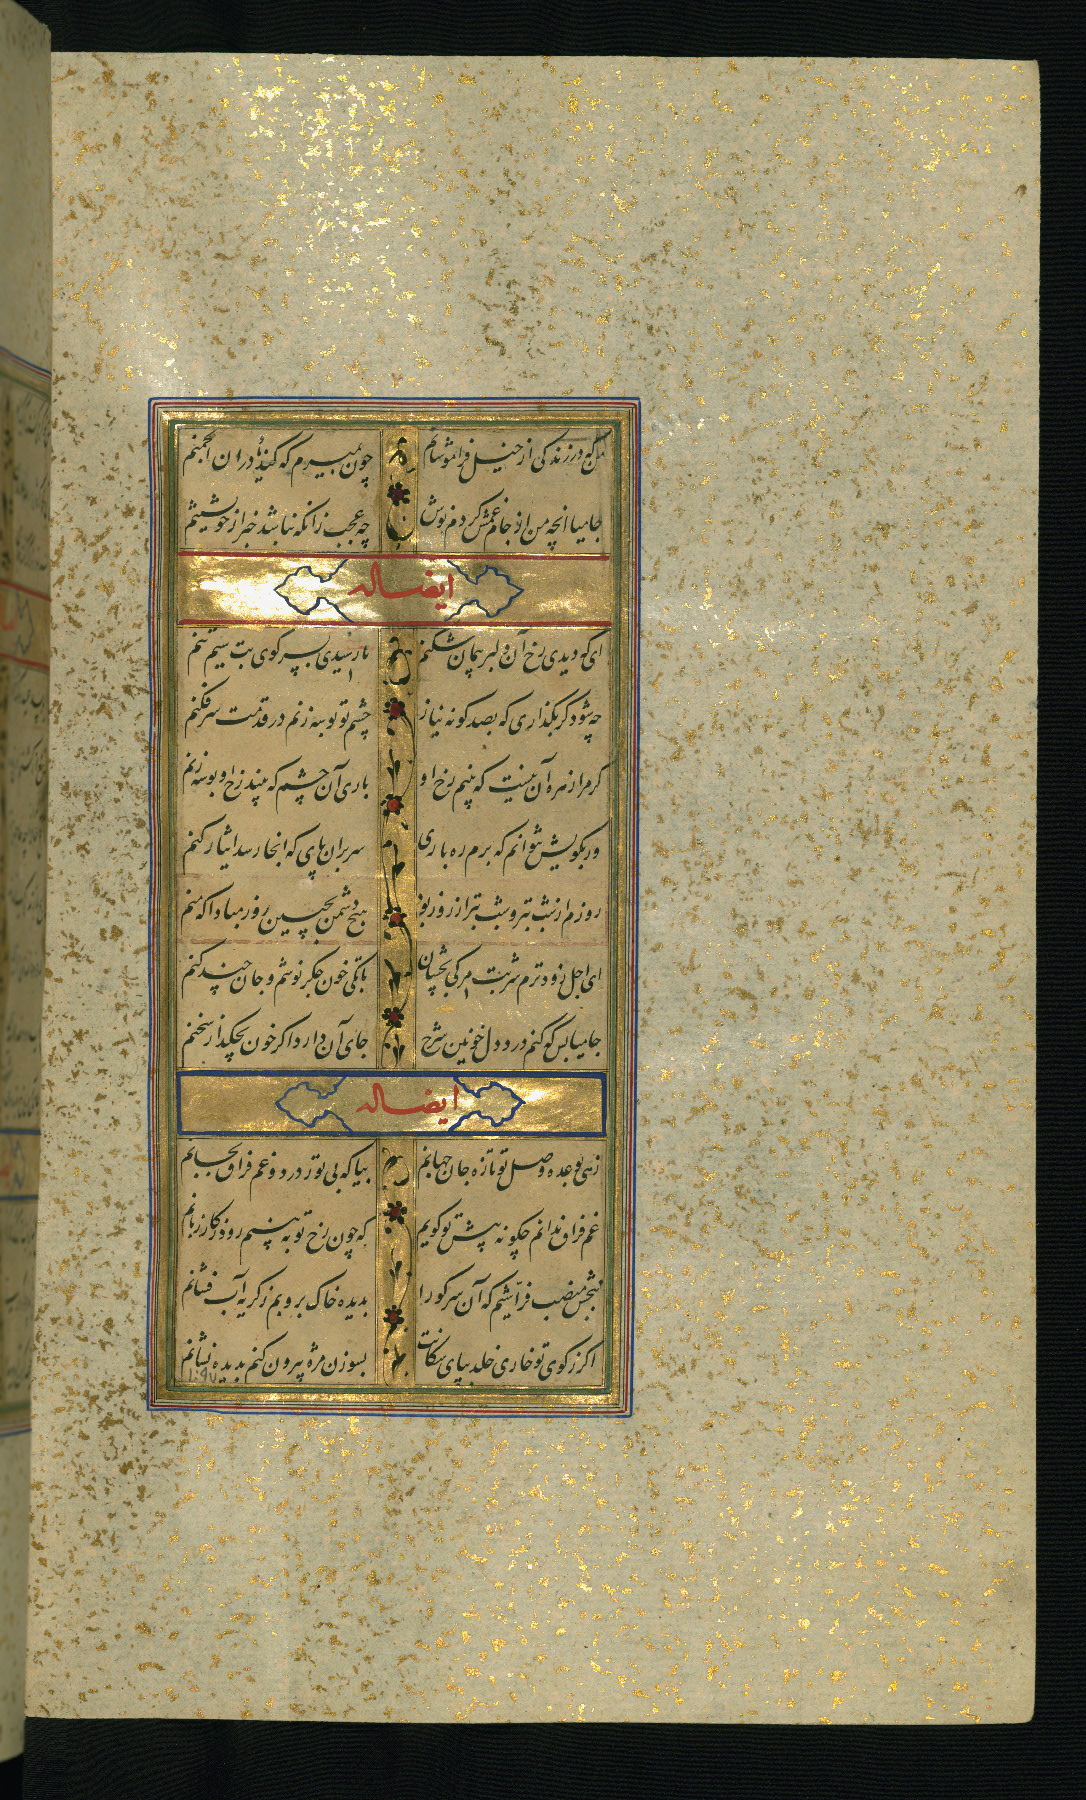 من که در زندگی از خیل فراموشانم چون بمیرم که کند یاد در ان انجمنم
جامیا انچه من از جام غمش کردم نوش چه عجب زانکه نباشد خبر از خویشتنم
ایضاله
ای که دیدی رخ آن دلبر پیمان شکنم باز رسیدی بسر کوی بت سیم تنم
چه شود کر بکذاری که بصد کونه نیاز چشم تو بوسه زنم در قدمت سر فکنم
کر مرا زهره آن نیست که بینم رخ او باری آن چشم که بیند رخ او بوسه زنم
ور بکویش نتوانم که برم ره باری سر بران پای که انجا رسد ایثار کنم
روزم از شب بتر و شب بتر از روز بود هیچ دشمن بچنین روز مبادا که منم
ای اجل زودترم شربت مرکی بچشان تا بکی خون جکر نوشم و جان چند کنم
جامیا بس که کنم درد دل خونین شرح جای آن دارد اکر خون بچکد از سخنم
ایضاله
زهی بوعده وصل تو تازه جان جهانم بیا که بی تو ز درد و غم فراق بجانم
غم فراق ندانم چکونه پیش تو کویم که چون رخ تو به بینم رود ز کار زبانم
ببخش منصب فراشیم که آن سر کو را بدیده خاک بروبم ز کریه آب فشانم
اکر ز کوی تو خاری خلد بپای سکانت بسوزن مژه بیرون کنم بدیده نشانم